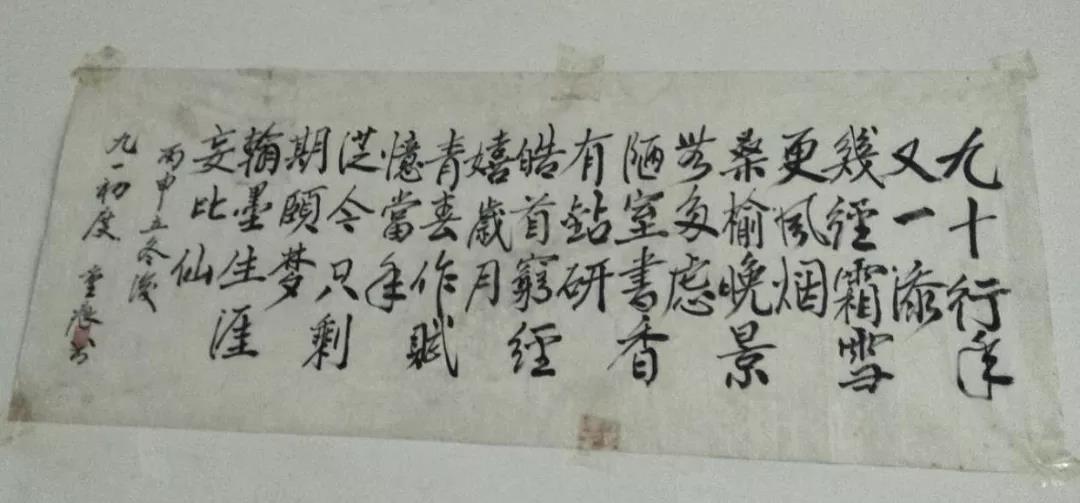 九十行年
又一添
幾經霜雪
更風烟
桑榆晚景
無多慮
陋室書香
有鉆研
皓首窮經
嬉歲月
青春作賦
憶當年
從今只剩
期頤梦
翰墨生涯
妄比仙
丙申立冬後
九一初度